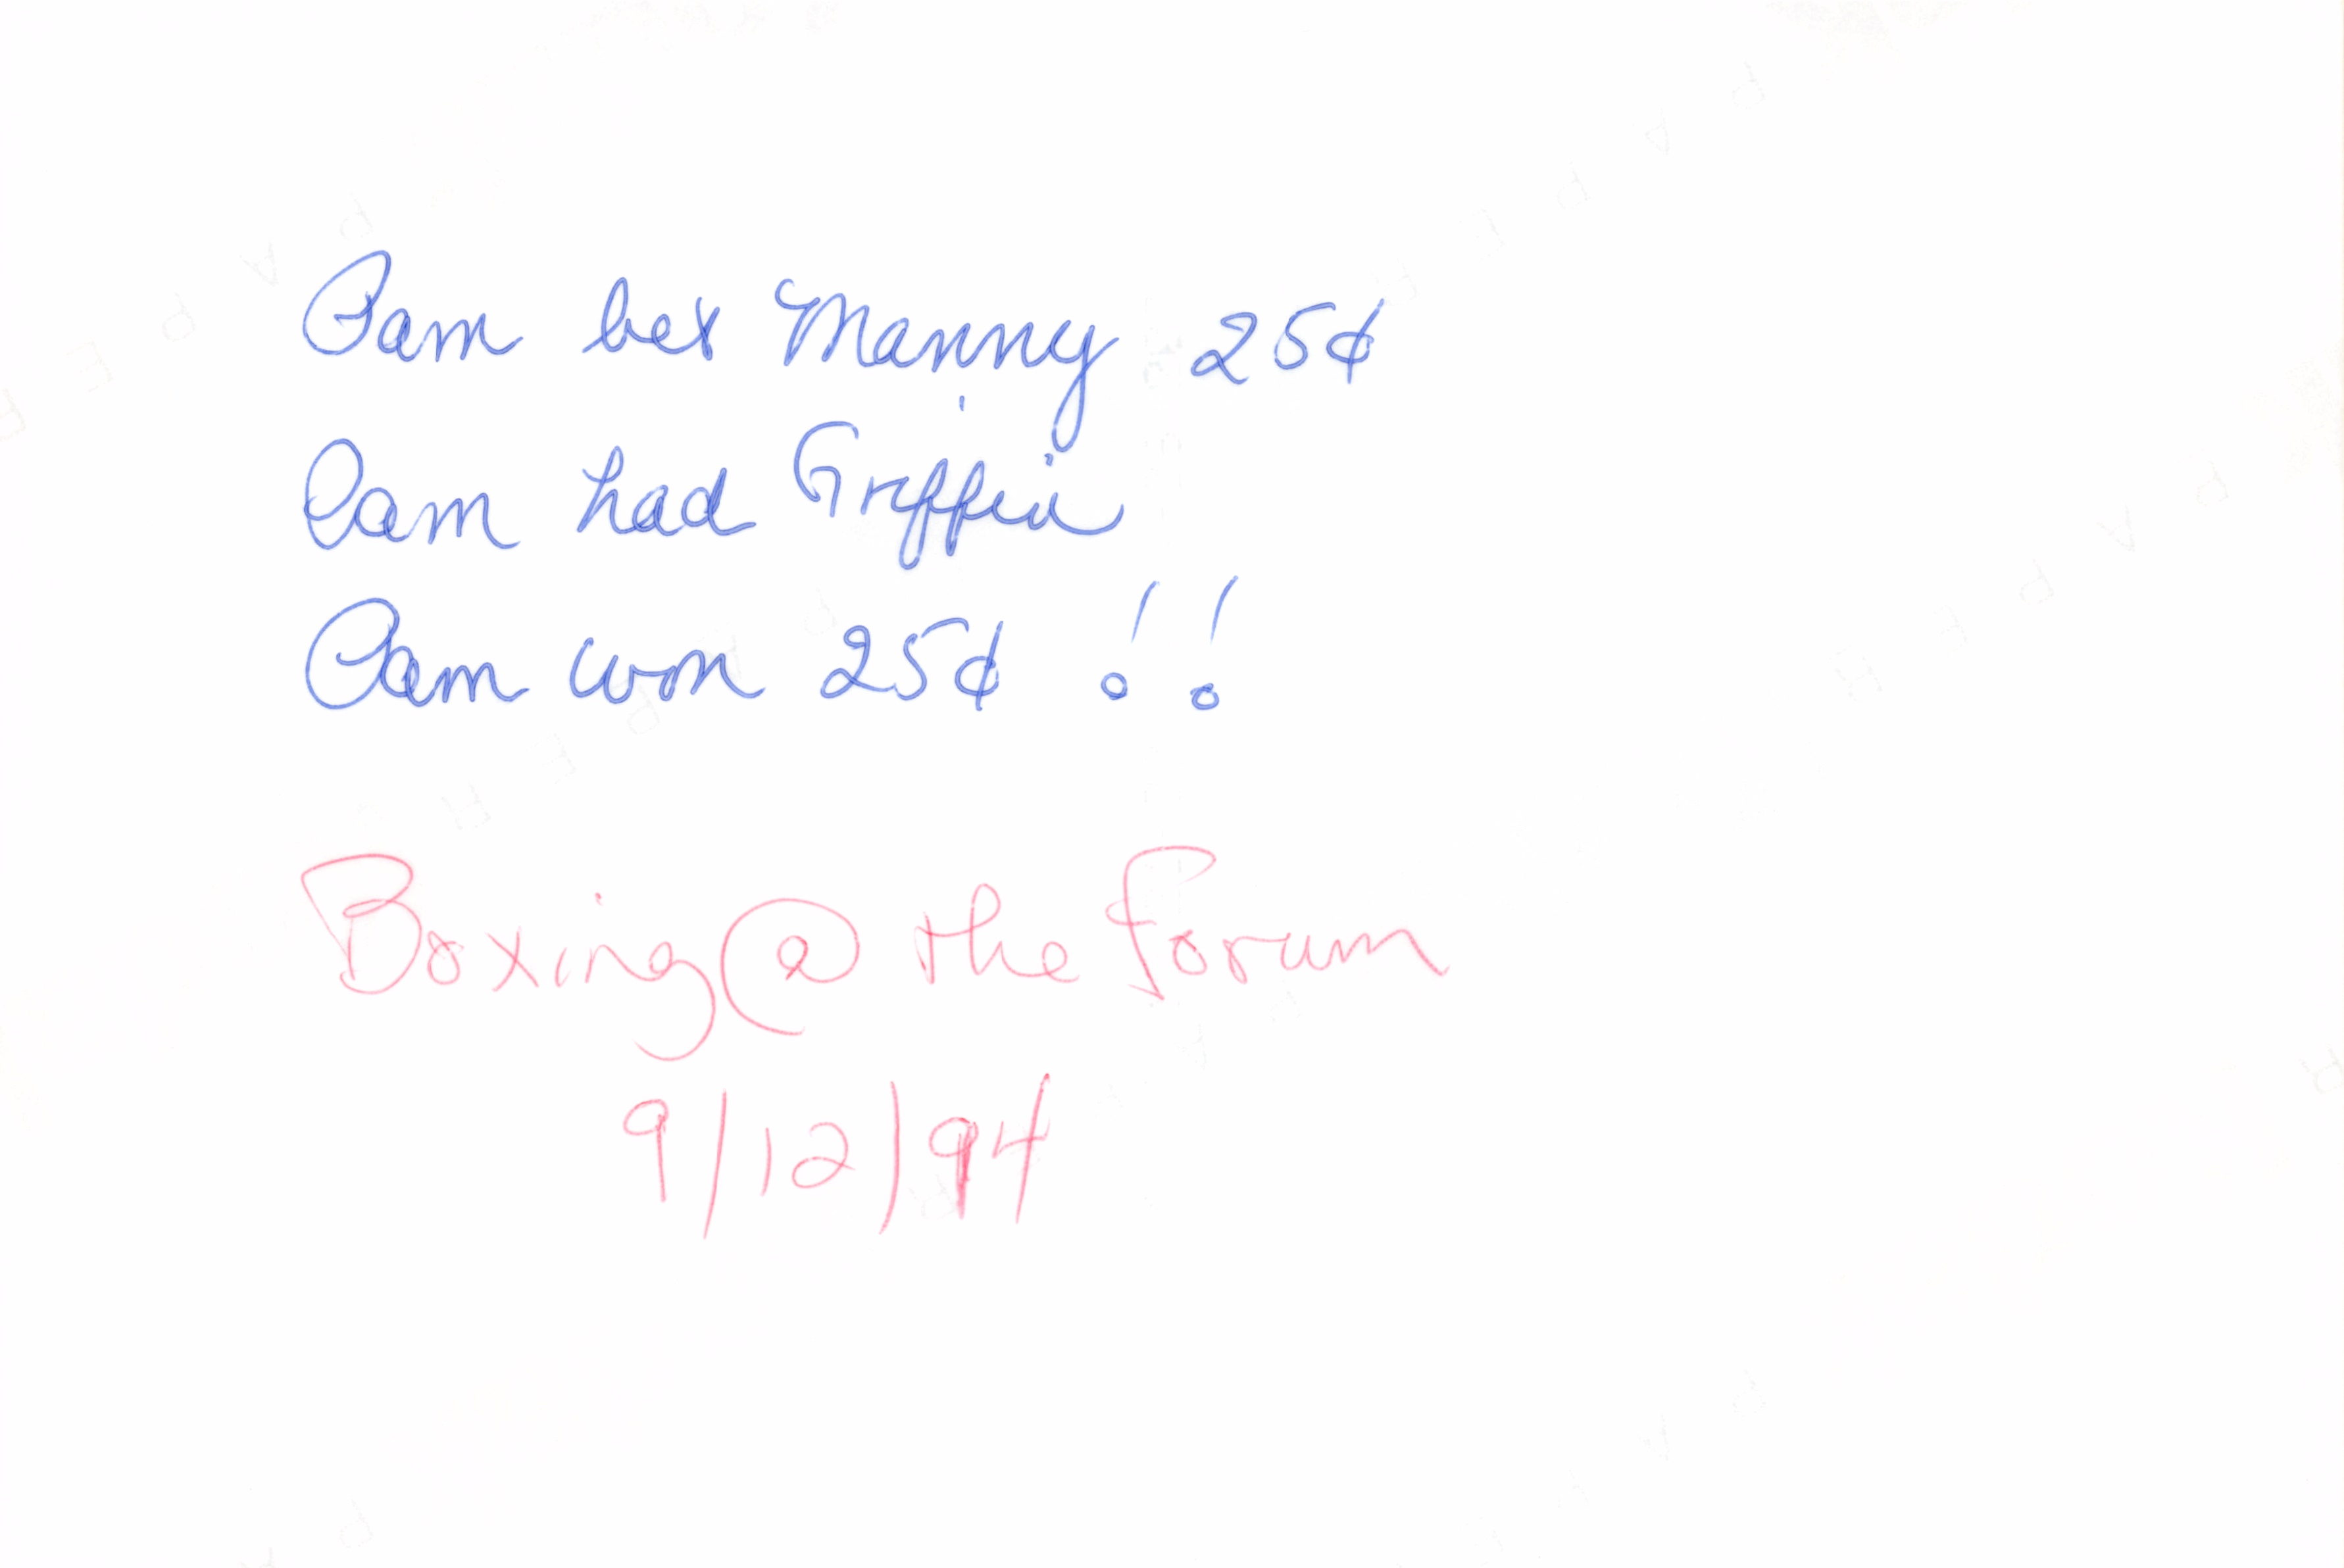 Pam bet Manny 25¢
Pam had Griffin
Pam won 25¢ !!
Boxing @ the Forum
9/12/94